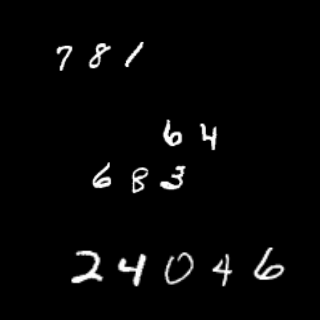 781
64
683
24046